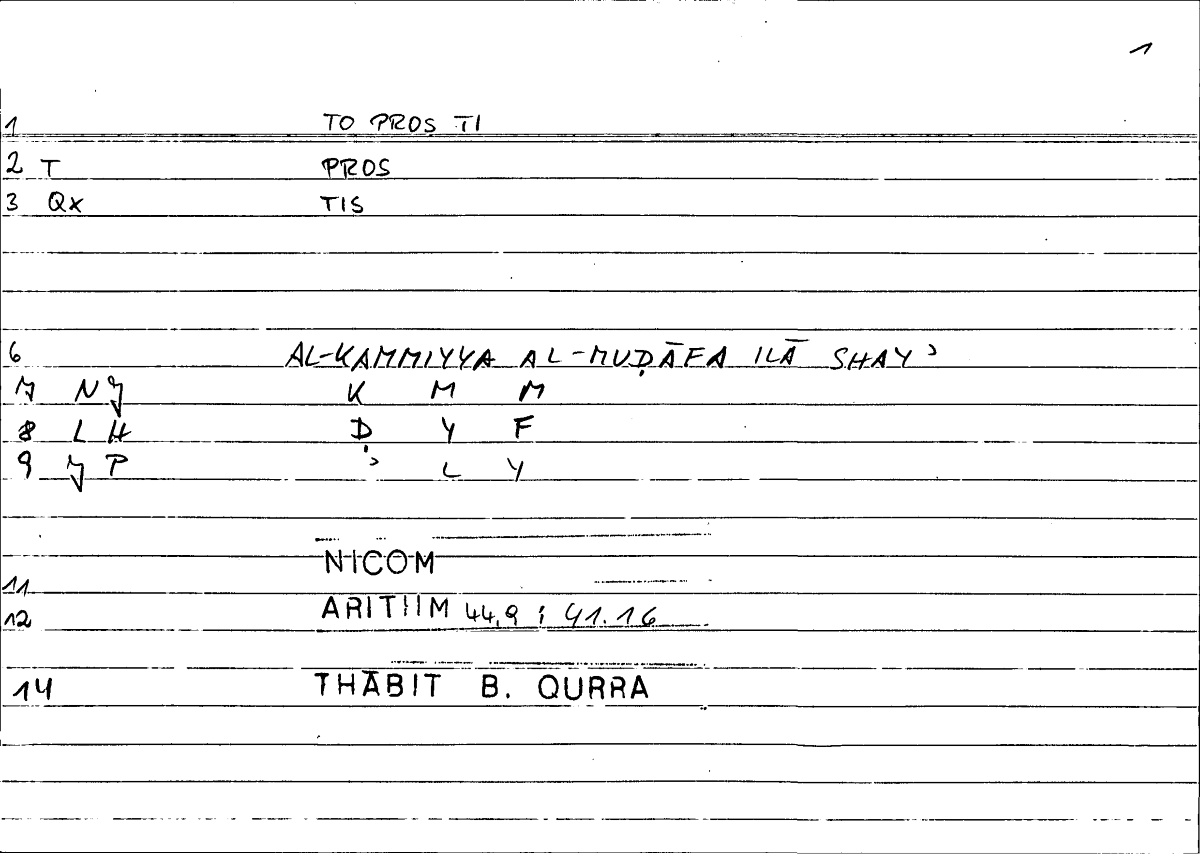 1
1 TO PROS TI
2 T PROS
3 Qx TIS
6 AL-KAMMIYYA AL-MUḌĀFA ILĀ SHAYʾ
7 N K M M
8 L H Ḍ Y F
9 P ʾ L Y
NICOM
11
12 ARITHM 44,9 ; 41.16
14 THĀBIT B. QURRA